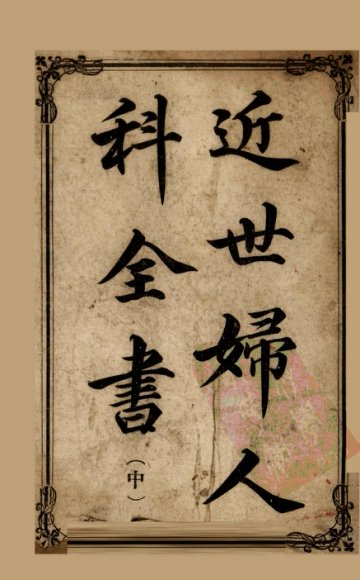 近世婦人
科全書
（中）